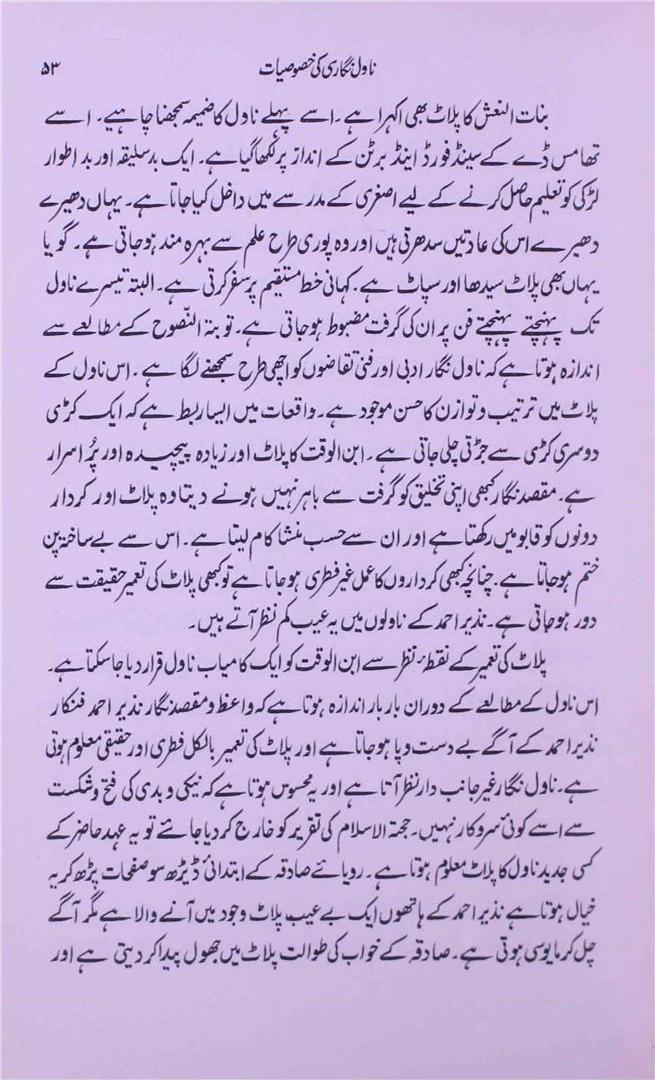 ناول نگاری کی خصوصیات ۵۳
بنات النعش کا پلاٹ بھی اکہرا ہے۔ اسے پہلے ناول کا ضمیمہ سمجھنا چاہیے۔ اسے
تھامس ڈے کے سینڈفورڈ اینڈ برٹن کے انداز پر لکھا گیا ہے۔ ایک بدسلیقہ اور بد اطوار
لڑکی کو تعلیم حاصل کرنے کے لیے اصغری کے مدرسے میں داخل کیا جاتا ہے۔ یہاں دھیرے
دھیرے اس کی عادتیں سدھرتی ہیں اور وہ پوری طرح علم سے بہرہ مند ہو جاتی ہے۔ گویا
یہاں بھی پلاٹ سیدھا اور سپاٹ ہے۔ کہانی خط مستقیم پر سفر کرتی ہے۔ البتہ تیسرے ناول
تک پہنچتے پہنچتے فن پر ان کی گرفت مضبوط ہو جاتی ہے۔ توبۃ النّصوح کے مطالعے سے
اندازہ ہوتا ہے کہ ناول نگار ادبی اور فنی تقاضوں کو اچھی طرح سمجھنے لگا ہے۔ اس ناول کے
پلاٹ میں ترتیب و توازن کا حسن موجود ہے۔ واقعات میں ایسا ربط ہے کہ ایک کڑی
دوسری کڑی سے جڑتی چلی جاتی ہے۔ ابن الوقت کا پلاٹ اور زیادہ پیچیدہ اور پُر اسرار
ہے۔ مقصد نگار کبھی اپنی تخلیق کو گرفت سے باہر نہیں ہونے دیتا وہ پلاٹ اور کردار
دونوں کو قابو میں رکھتا ہے اور ان سے حسب منشا کام لیتا ہے۔ اس سے بے ساختہ پن
ختم ہو جاتا ہے۔ چنانچہ کبھی کرداروں کا عمل غیر فطری ہو جاتا ہے تو کبھی پلاٹ کی تعمیر حقیقت سے
دور ہو جاتی ہے۔ نذیر احمد کے ناولوں میں یہ عیب کم نظر آتے ہیں۔
پلاٹ کی تعمیر کے نقطۂ نظر سے ابن الوقت کو ایک کامیاب ناول قرار دیا جا سکتا ہے۔
اس ناول کے مطالعے کے دوران بار بار اندازہ ہوتا ہے کہ واعظ و مقصد نگار نذیر احمد فنکار
نذیر احمد کے آگے بے دست و پا ہو جاتا ہے اور پلاٹ کی تعمیر بالکل فطری اور حقیقی معلوم ہوتی
ہے۔ ناول نگار غیر جانب دار نظر آتا ہے اور یہ محسوس ہوتا ہے کہ نیکی و بدی کی فتح و شکست
سے اسے کوئی سروکار نہیں۔ حجۃ الاسلام کی تقریر کو خارج کر دیا جائے تو یہ عہد حاضر کے
کسی جدید ناول کا پلاٹ معلوم ہوتا ہے۔ رویائے صادقہ کے ابتدائی ڈیڑھ سو صفحات پڑھ کر یہ
خیال ہوتا ہے نذیر احمد کے ہاتھوں ایک بے عیب پلاٹ وجود میں آنے والا ہے مگر آگے
چل کر مایوسی ہوتی ہے۔ صادقہ کے خواب کی طوالت پلاٹ میں جھول پیدا کر دیتی ہے اور